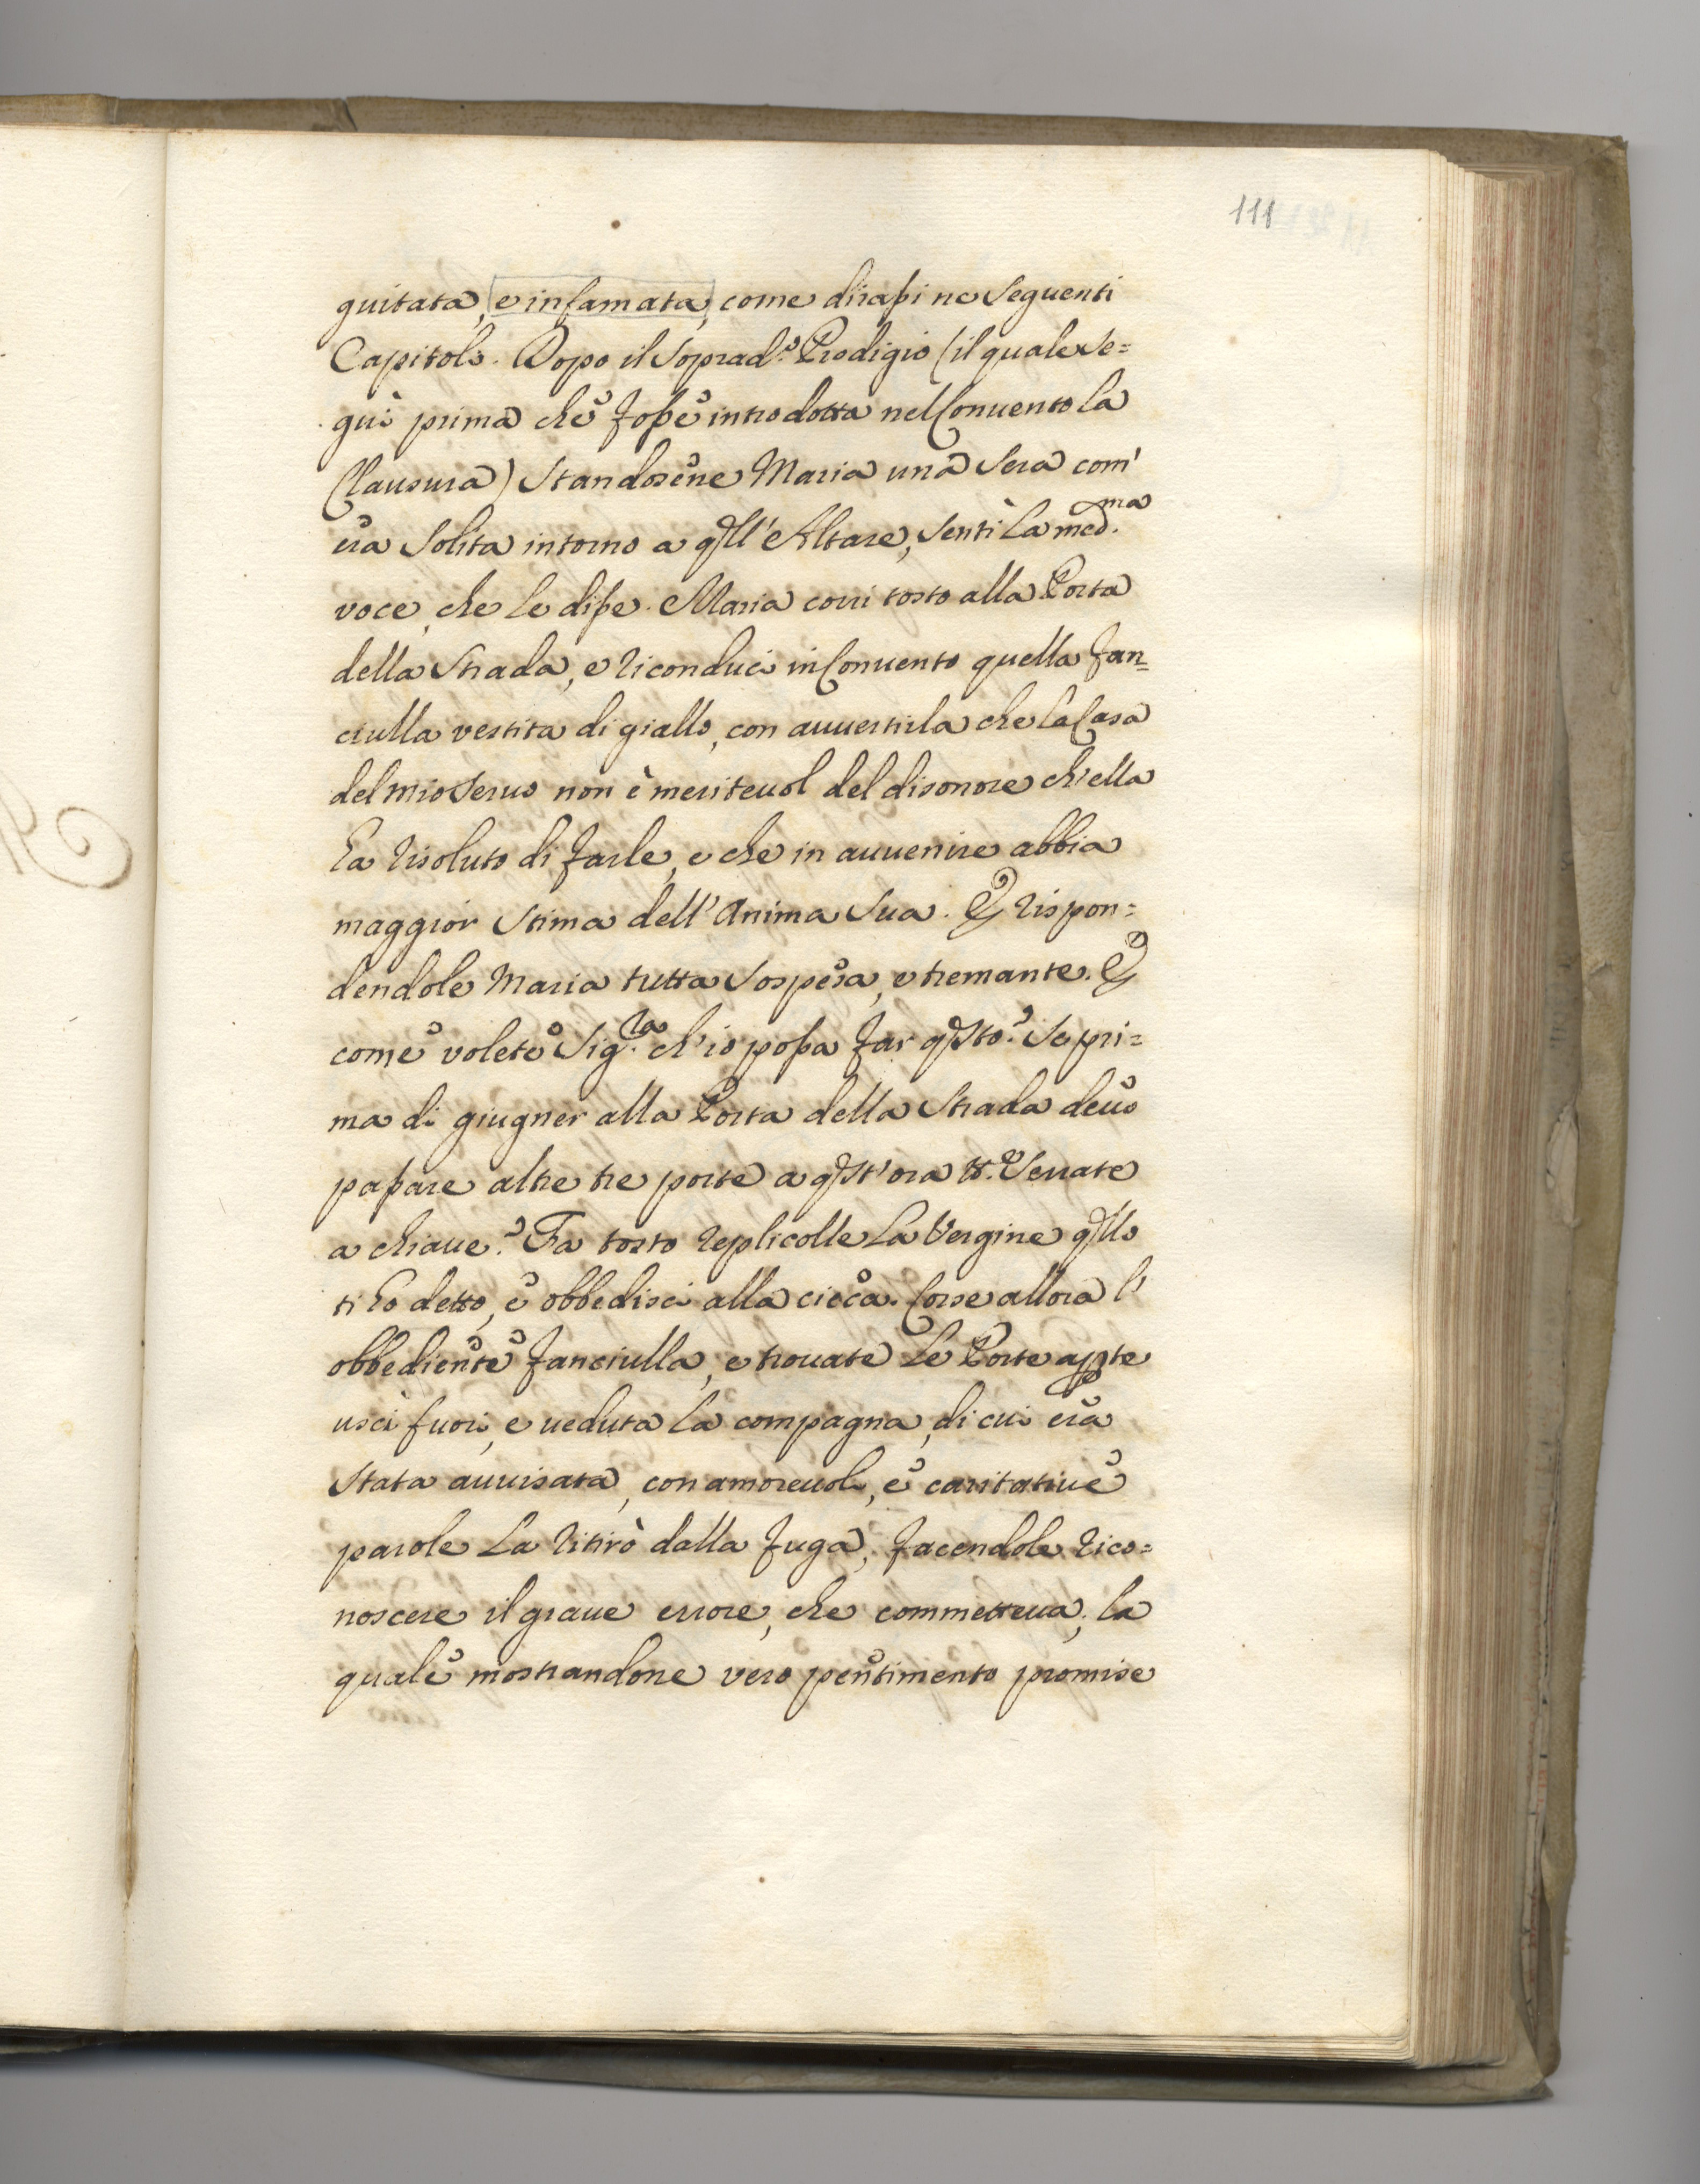 111
guitata, e infamata, come dirassi ne seguenti
Capitoli. Dopo il soprad.o Prodigio (il quale se=
guì prima che fosse introdotta nel Convento la
Clausura) standosene Maria una sera com'
era solita intorno a qll'Altare, sentì la med.ma
voce, che le disse. Maria corri tosto alla Porta
della strada, e riconduci in Convento quella fan=
ciulla vestita di giallo, con avvertirla che la Casa
del mio servo non è meritevol del disonore ch'ella
ha risoluto di farle, e che in avvenire abbia
maggior stima dell'Anima sua. E rispon=
dendole Maria tutta sospesa, e tremante. E
come volete Sig.ra ch'io possa far qsto? Se pri=
ma di giugner alla Porta della strada devo
passare altre tre porte a qst'ora tt.e serrate
a chiave? Fa tosto replicolle la Vergine qllo
ti ho detto, e obbedisci alla cieca. Corse allora l'
obbediente fanciulla, e trovate le Porte apte
uscì fuori, e veduta la compagna, di cui era
stata avvisata, con amorevoli, e caritative
parole la ritirò dalla fuga, facendole rico=
noscere il grave errore, che commetteva; la
quale mostrandone vero pentimento promise